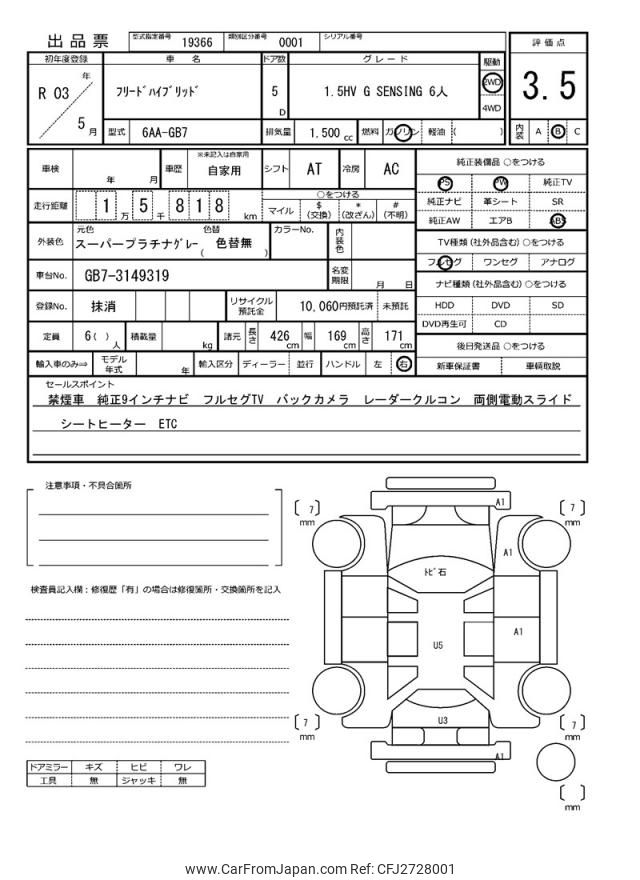 出品票 型式指定番号 19366 類別区分番号 0001 シリアル番号
初年度登録 車名 ドア数 グレード 駆動 評価点
R 03 年 5 月 フリードハイブリッド 5 D 1.5HV G SENSING 6人 2WD 4WD 3.5
型式 6AA-GB7 排気量 1.500 cc 燃料 ガソリン 軽油 ( ) 内装 A B C
車検 年 月 車歴 ※未記入は自家用 自家用 シフト AT 冷房 AC
純正装備品 ○をつける
PS PW 純正TV
純正ナビ 革シート SR
純正AW エアB ABS
走行距離 1 万 5 千 8 1 8 km
○をつける
マイル $ (交換) * (改ざん) # (不明)
外装色 元色 スーパープラチナグレー 色替 ( 色替無 ) カラーNo. 内装色
TV種類 (社外品含む) ○をつける
フルセグ ワンセグ アナログ
車台No. GB7-3149319 名変期限 月 日
ナビ種類 (社外品含む) ○をつける
HDD DVD SD
DVD再生可 CD
登録No. 抹消 リサイクル預託金 10,060円預託済 未預託
定員 6( ) 人 積載量 kg 諸元 長さ 426 cm 幅 169 cm 高さ 171 cm
後日発送品 ○をつける
新車保証書 車輌取説
輸入車のみ⇒ モデル年式 年 輸入区分 ディーラー 並行 ハンドル 左 右
セールスポイント
禁煙車 純正9インチナビ フルセグTV バックカメラ レーダークルコン 両側電動スライド
シートヒーター ETC
注意事項・不具合箇所
検査員記入欄：修復歴「有」の場合は修復箇所・交換箇所を記入
[ 7 ] mm A1 [ 7 ] mm
A1
トビ石
A1
U5
U3
[ 7 ] mm A1 [ 7 ] mm
[ ] mm
ドアミラー キズ ヒビ ワレ
工具 無 ジャッキ 無
www.CarFromJapan.com Ref: CFJ2728001